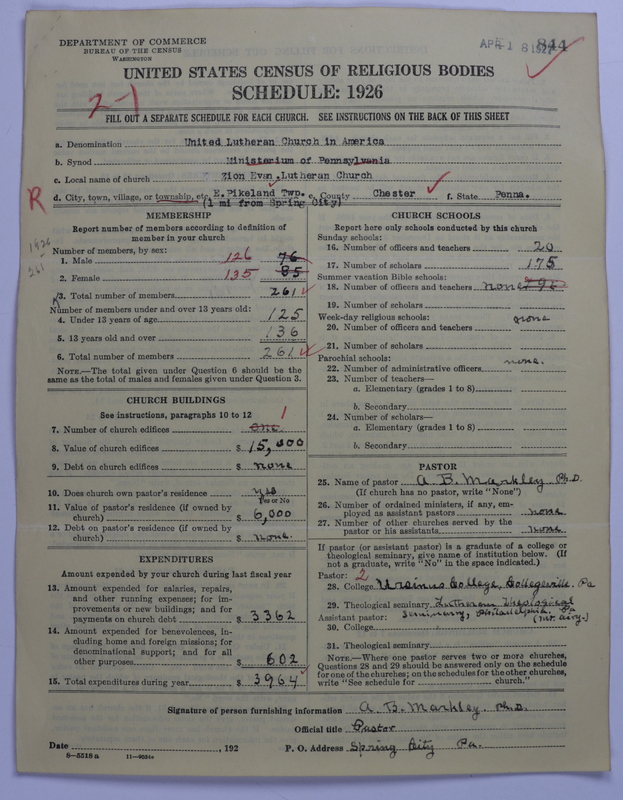 DEPARTMENT OF COMMERCE
BUREAU OF THE CENSUS
WASHINGTON
APR 18 1927
844
UNITED STATES CENSUS OF RELIGIOUS BODIES
SCHEDULE: 1926
2-1
FILL OUT A SEPARATE SCHEDULE FOR EACH CHURCH. SEE INSTRUCTIONS ON THE BACK OF THIS SHEET
a. Denomination United Lutheran Church in America
b. Synod Ministerium of Pennsylvania
c. Local name of church Zion Evan. Lutheran Church
R
d. City, town, village, or township, etc. E. Pikeland Twp. e. County Chester f. State Penna.
(1 mi from Spring City)
MEMBERSHIP
Report number of members according to definition of member in your church
1926
261
Number of members, by sex:
1. Male 126 76
2. Female 135 85
3. Total number of members 261
Number of members under and over 13 years old:
4. Under 13 years of age 125
5. 13 years old and over 136
6. Total number of members 261
NOTE.—The total given under Question 6 should be
same as the total of males and females given under Question 3.
CHURCH BUILDINGS
See instructions, paragraphs 10 to 12
7. Number of church edifices One 1
8. Value of church edifices $ 15,000
9. Debt on church edifices $ none
10. Does church own pastor's residence yes
Yes or No
11. Value of pastor's residence (if owned by
church) $ 6,000
12. Debt on pastor's residence (if owned by
church) $ none.
EXPENDITURES
Amount expended by your church during last fiscal year
13. Amount expended for salaries, repairs,
and other running expenses; for im-
provements or new buildings; and for
payments on church debt $ 3362
14. Amount expended for benevolences, in-
cluding home and foreign missions; for
denominational support; and for all
other purposes $ 602
15. Total expenditures during year $ 3964
CHURCH SCHOOLS
Report here only schools conducted by this church
Sunday schools:
16. Number of officers and teachers 20
17. Number of scholars 175
Summer vacation Bible schools:
18. Number of officers and teachers none
19. Number of scholars
Week-day religious schools: none
20. Number of officers and teachers
21. Number of scholars
Parochial schools: none.
22. Number of administrative officers
23. Number of teachers—
a. Elementary (grades 1 to 8)
b. Secondary
24. Number of scholars—
a. Elementary (grades 1 to 8)
b. Secondary
PASTOR
25. Name of pastor A. B. Markley Ph.D.
(If church has no pastor, write "None")
26. Number of ordained ministers, if any, em-
ployed as assistant pastors none.
27. Number of other churches served by the
pastor or his assistants none.
If pastor (or assistant pastor) is a graduate of a college or
theological seminary, give name of institution below. (If
not a graduate, write "No" in the space indicated.)
Pastor: 2
28. College Ursinus College, Collegeville. Pa
29. Theological seminary Lutheran Theological
Seminary, Philadelphia, Pa
(Mt. Airy.)
Assistant pastor:
30. College
31. Theological seminary
NOTE.—Where one pastor serves two or more churches,
Questions 28 and 29 should be answered only on the schedule
for one of the churches; on the schedules for the other churches,
write "See schedule for church."
Signature of person furnishing information A. B. Markley. Ph.D.
Official title Pastor
Date , 192 P. O. Address Spring City Pa.
8—5518 a